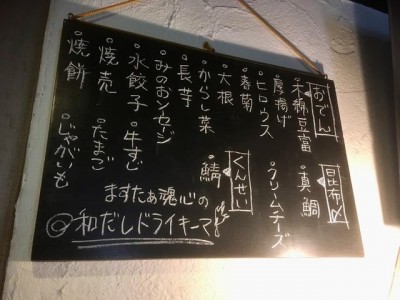 おでん
・木綿豆富
・厚揚げ
・ヒロウス
・春菊
・大根
・からし菜
・長芋
・みのおソセージ
・水餃子
・焼売
・焼餅
・牛すじ
・たまご
・じゃがいも
昆布〆
・真鯛
・クリームチーズ
くんせい
・鯖
ますたぁ魂心の
◎和だしドライキーマ